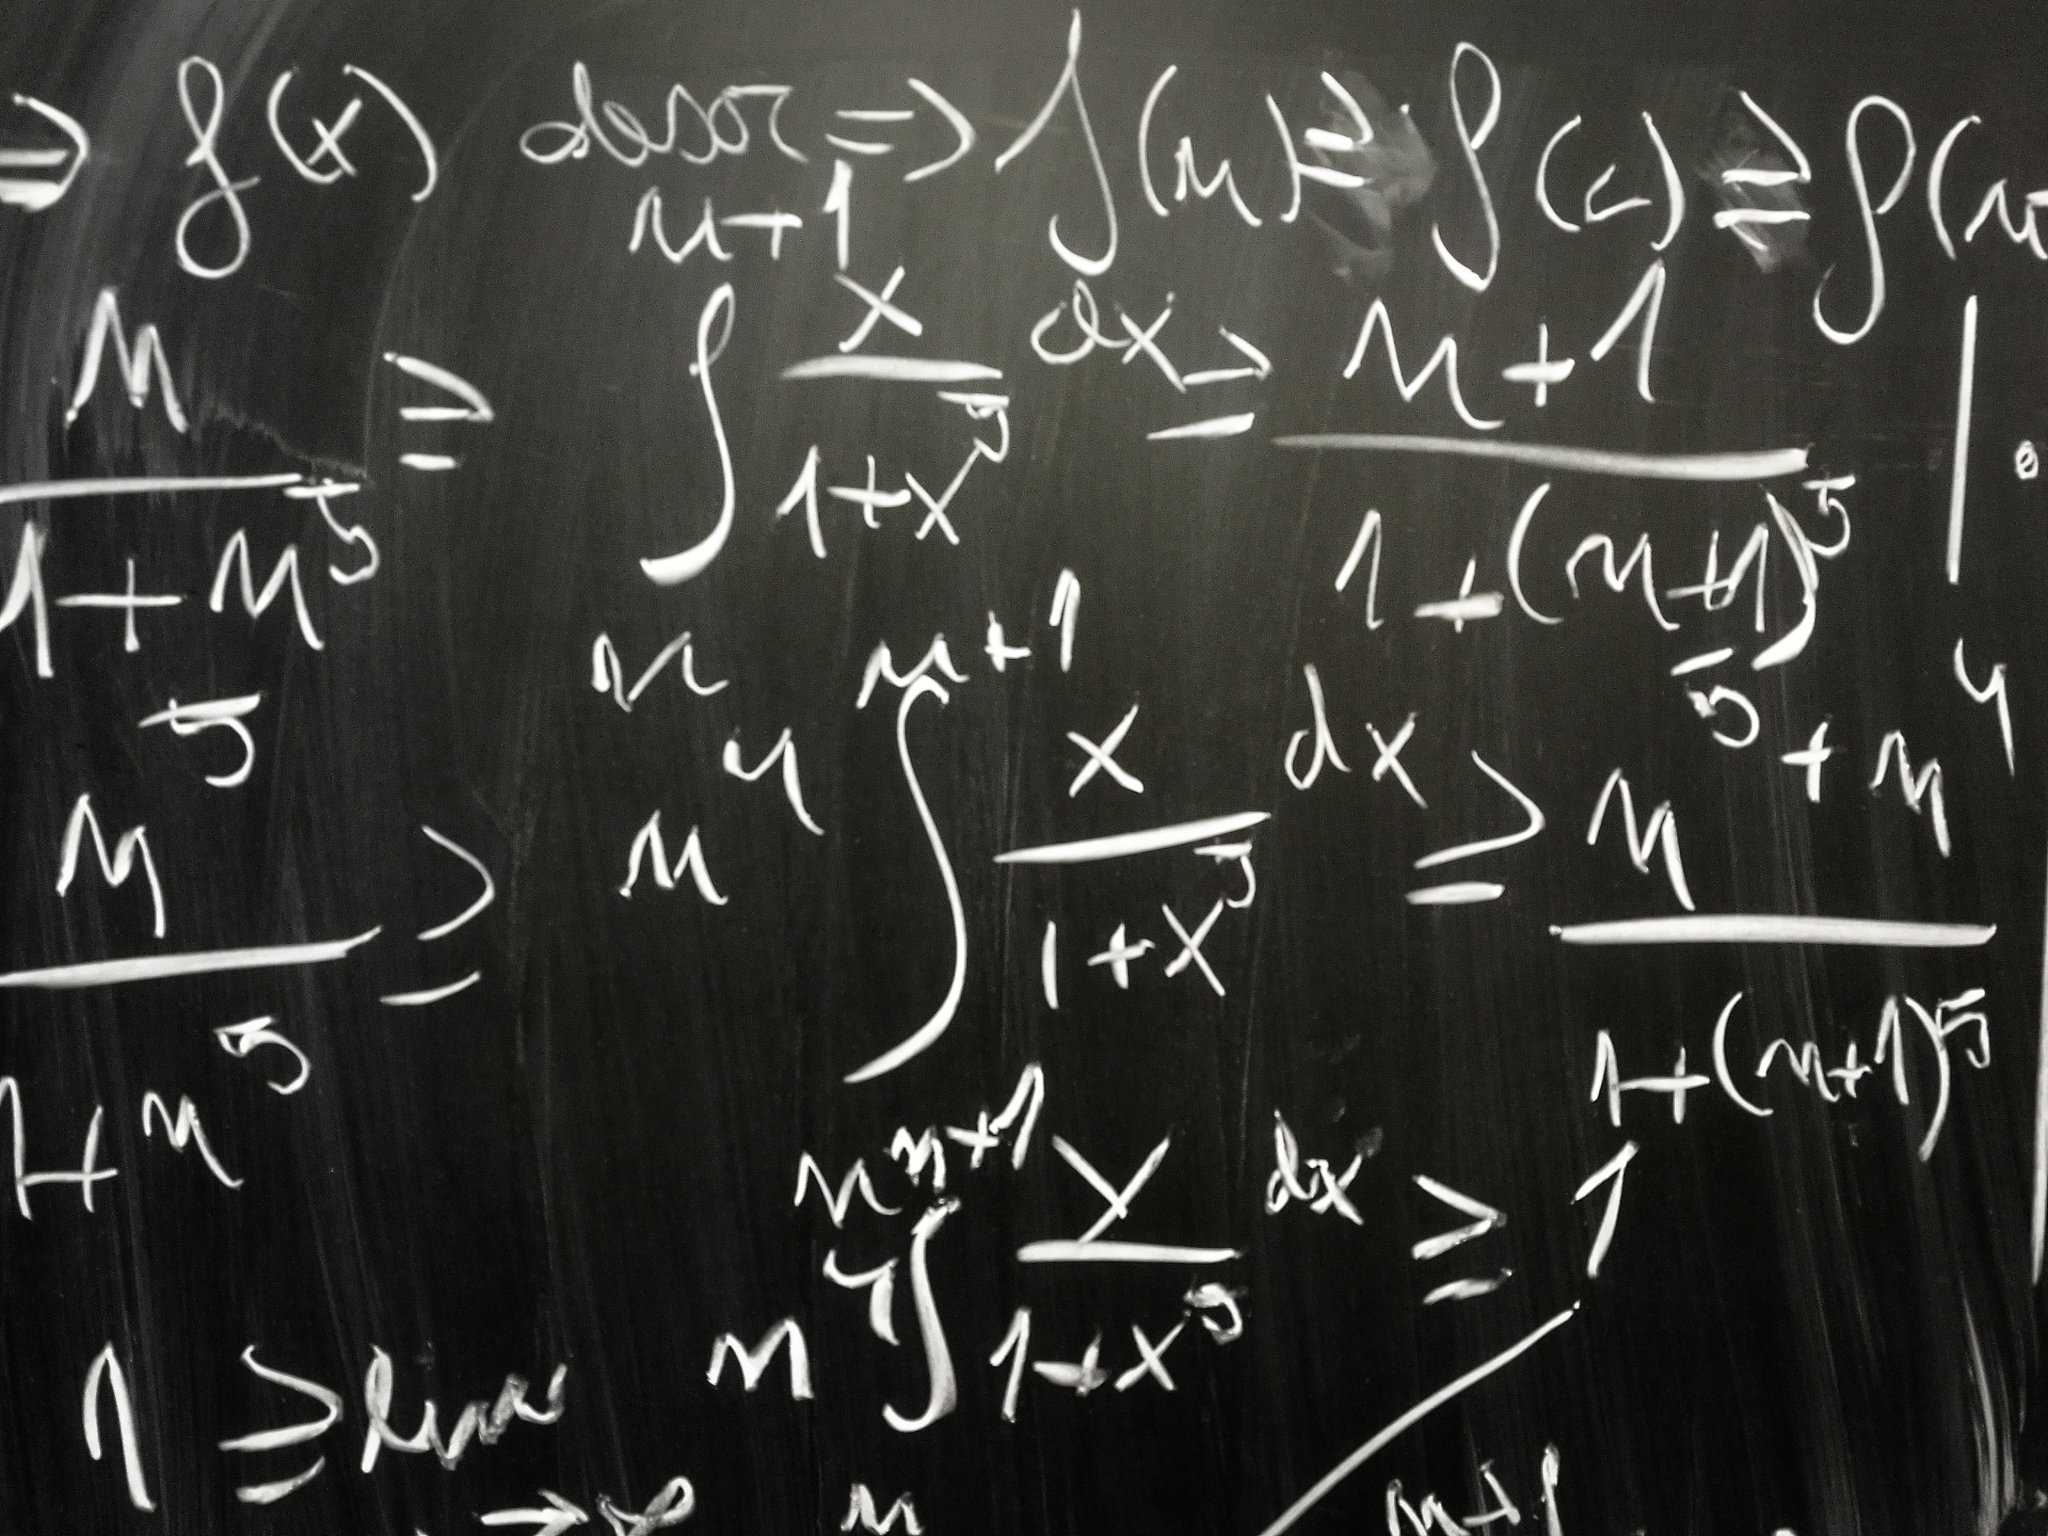 ⇒ f(x) descr ⇒ f(n) ≥ f(c) ≥ f(n
n/(1+n^5) ≥ ∫_n^{n+1} x/(1+x^5) dx ≥ (n+1)/(1+(n+1)^5) | ·
n^5/(1+n^5) ≥ n^4 ∫_n^{n+1} x/(1+x^5) dx ≥ (n^5+n^4)/(1+(n+1)^5)
1 ≥ lim n^4 ∫_n^{n+1} x/(1+x^5) dx ≥ 1
→∞
n+1